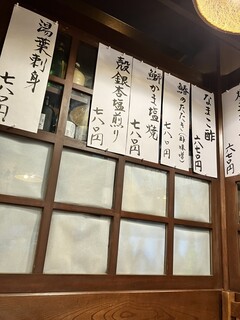 六七〇円
なまこ酢
八七〇円
鯵のたたき(酢味噌)
七八〇円
鰤かま塩焼
七八〇円
殻銀杏塩煎り
七八〇円
湯葉刺身
七八〇円